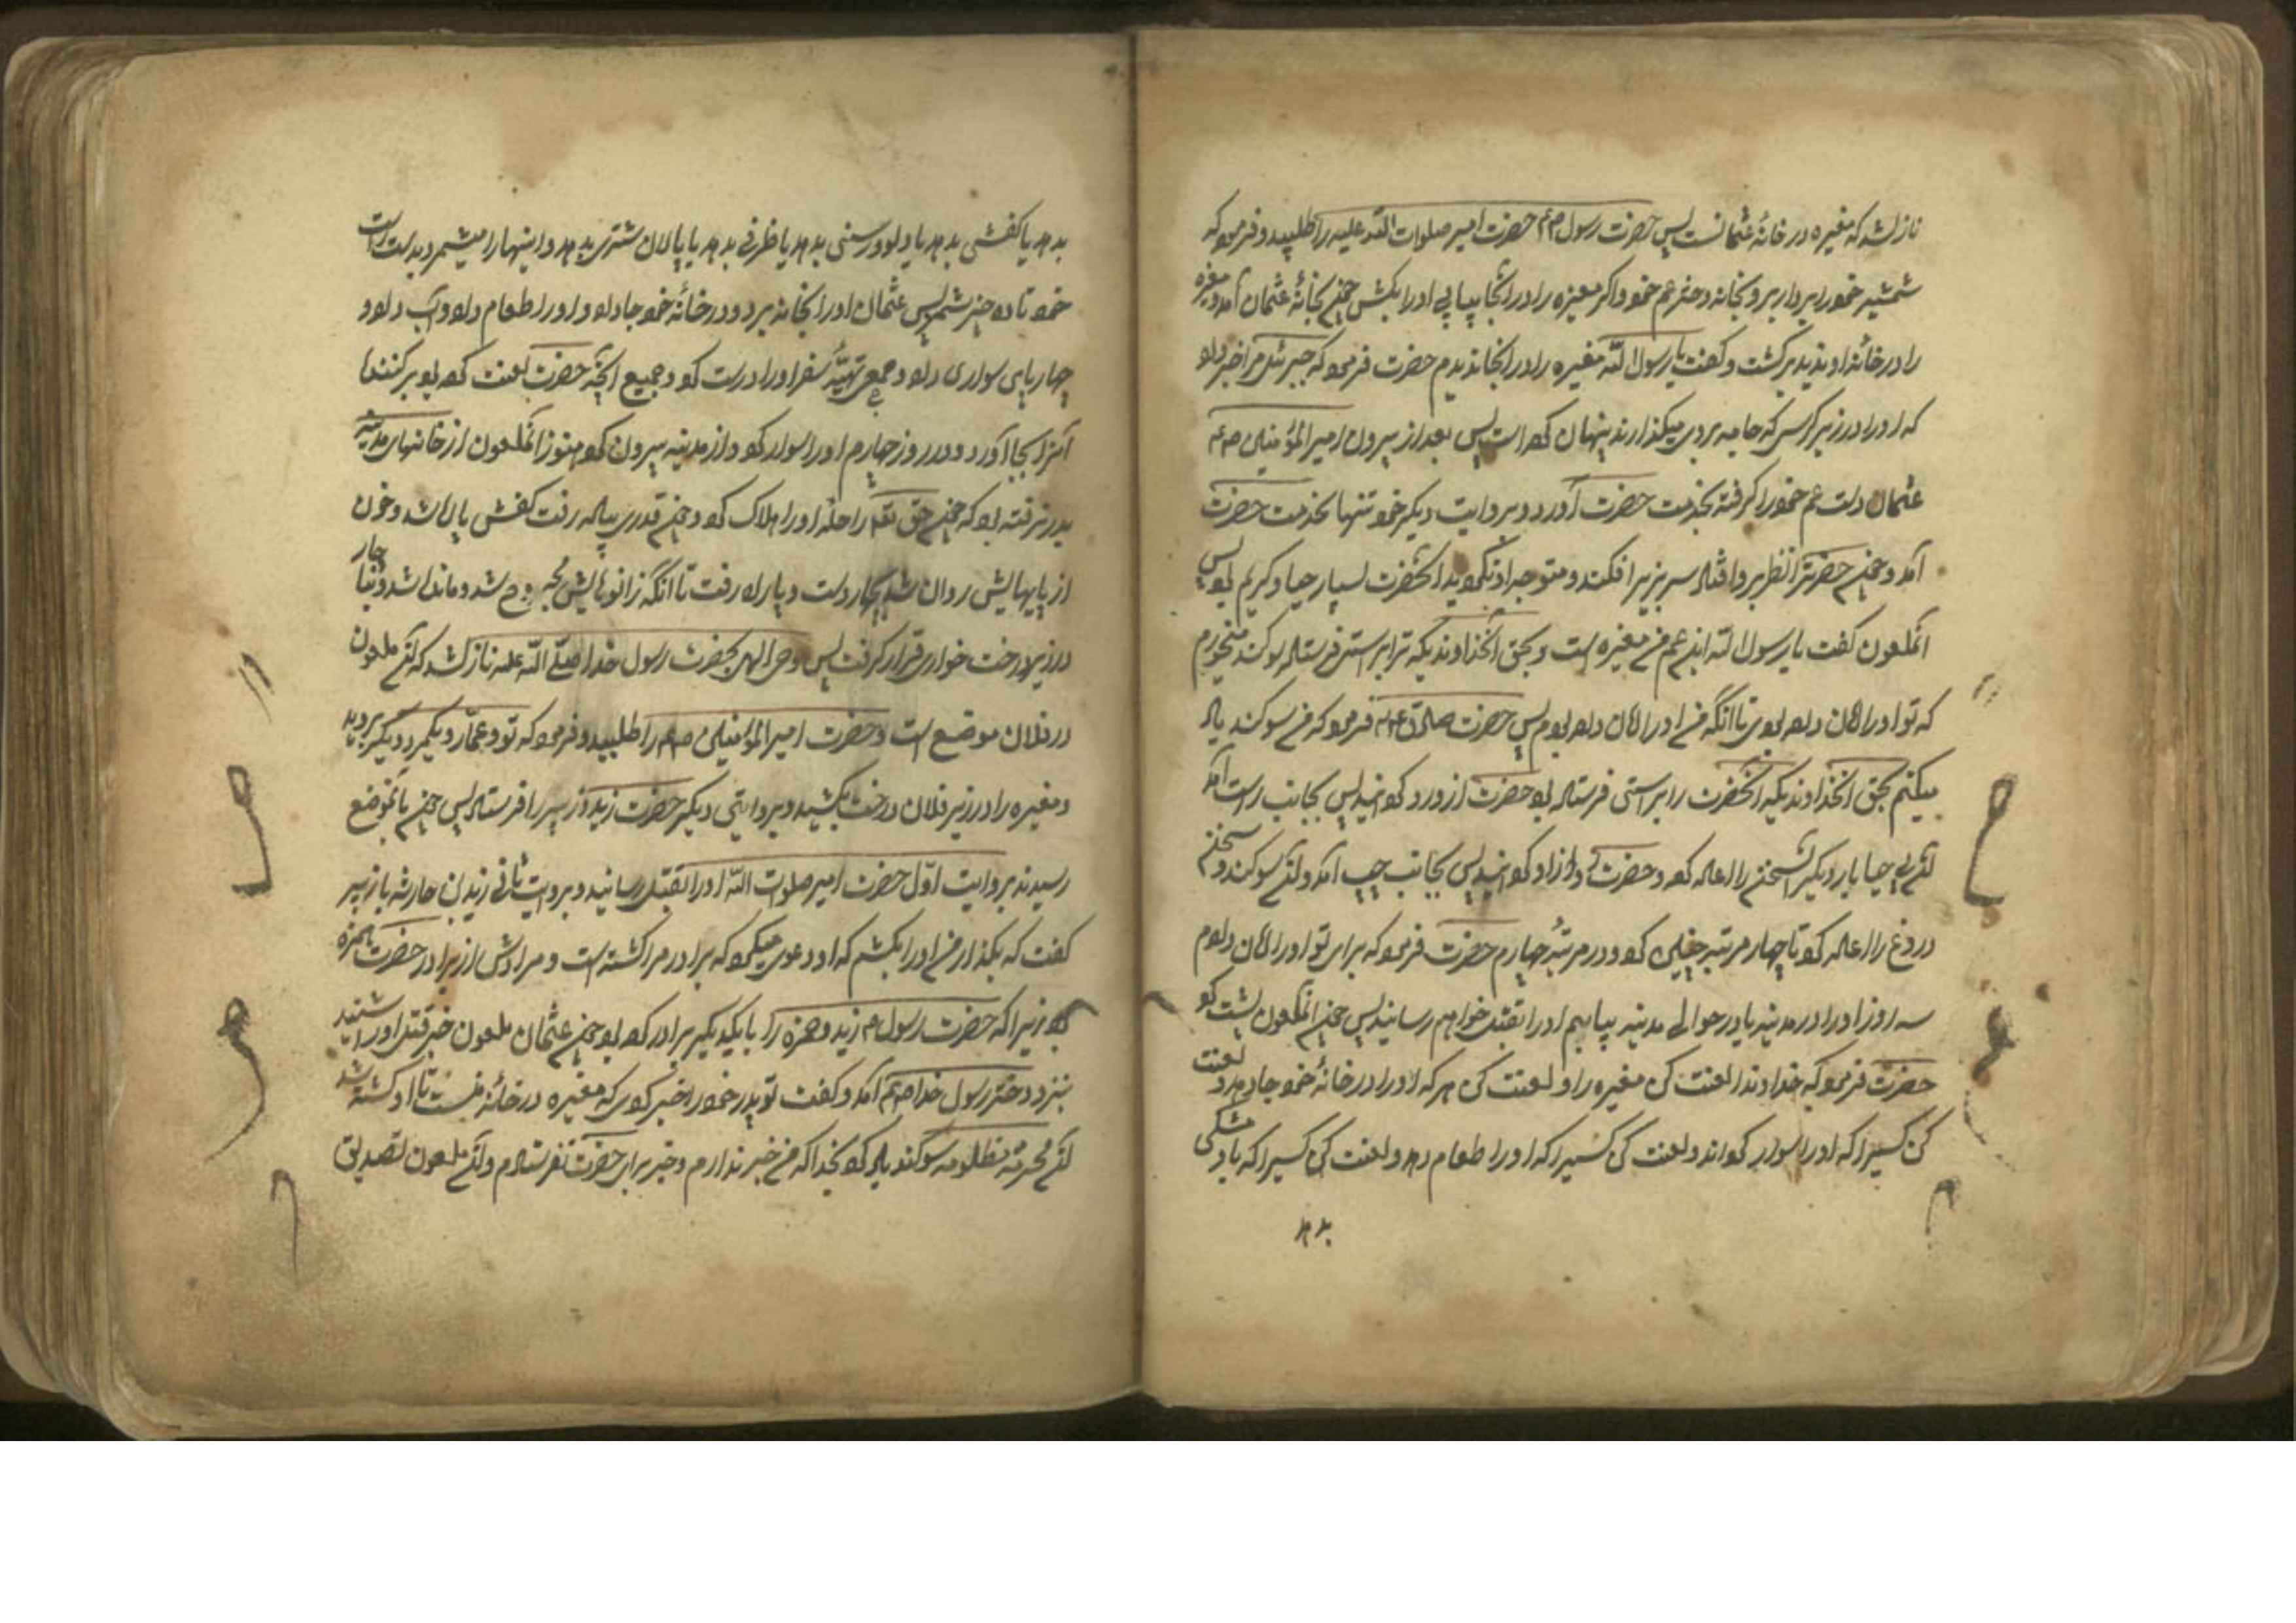 نازل شد که مغیره در خانهٔ عثمانست پس حضرت رسول صم حضرت امیر صلوات الله علیه را طلبید و فرمود که
شمشیر خود را بردار برو بخانه دختر عم خود و اگر مغیره را در آنجا بیابی او را بکش چون بخانهٔ عثمان آمد و مغیره
را در خانه او ندید برگشت و گفت یا رسول الله مغیره را در آنجا ندیدم حضرت فرمود که جبرئیل مرا خبر داد
که او را در زیر کرسی که جامه بر روی میگذارند پنهان کرده است پس بعد از بیرون امیر المؤمنین صم
عثمان دست عم خود را گرفته بخدمت حضرت آورد و بروایت دیگر خود تنها بخدمت حضرت
آمد و چون حضرت را نظر برو افتاد سر بزیر افکند و متوجه او نگردید و آنحضرت بسیار حیا و کریم بود پس
آنملعون گفت یا رسول الله این عم من مغیره است و بحق آنخداوندیکه ترا براستی فرستاده سوگند میخورم
که تو او را امان داده بودی تا آنکه من او را امان داده بودم پس حضرت صادق عم فرمود که من سوگند یاد
میکنم بحق آنخداوندیکه آنحضرت را براستی فرستاده بود حضرت ازو رو گردانید پس بجانب راست آمد
آن بی حیا بار دیگر آن سخن را اعاده کرد و حضرت رو ازو گردانید پس بجانب چپ آمد و آن سوگند و سخن
دروغ را اعاده کرد تا چهار مرتبه چنین کرد و در مرتبهٔ چهارم حضرت فرمود که برای تو او را امان دادم
سه روز او را در مدینه یا در حوالی مدینه بیابم او را بقتل خواهم رسانید پس چون آنملعون پشت کرد
حضرت فرمود که خداوندا لعنت کن مغیره را و لعنت کن هر که او را در خانهٔ خود جا دهد و لعنت
کن کسیرا که او را سوار کرداند و لعنت کن کسیرا که او را طعام دهد و لعنت کن کسیرا که باو مشکی
بدهد
بدهد یا کفشی بدهد یا دلو و رسنی بدهد یا ظرفی بدهد یا پالان شتری بدهد و اینها را میشمرد بدست راست
خود تا ده چیز شمرد پس عثمان او را بخانه برد و در خانهٔ خود جا داد و او را طعام داد و آب داد و
چهارپای سواری داد و جمیع تهیّهٔ سفر او را درست کرد و جمیع آنچه حضرت لعنت کرده بود بر کننده
آنرا بجا آورد و در روز چهارم او را سوار کرد و از مدینه بیرون کرد هنوز آنملعون از خانهای مدینه
بدر نرفته بود که چون حق تعم راحلهٔ او را هلاک کرد و چون قدری پیاده رفت کفش پاره شد و خون
از پایهایش روان شد بچهار دست و پا راه رفت تا آنکه زانوهایش مجروح شد و مانده شد و ناچار
در زیر درخت خواری قرار گرفت پس وحی الهی بحضرت رسول خدا صلّی الله علیه نازل شد که آن ملعون
در فلان موضع است و حضرت امیر المؤمنین صم را طلبید و فرمود که تو و عمّار و یکمرد دیگر بروید
و مغیره را در زیر فلان درخت بکشید و بروایتی دیگر حضرت زید و زبیر را فرستاد پس چون بآنموضع
رسیدند بروایت اوّل حضرت امیر صلوات الله او را بقتل رسانید و بروایت ثانی زید بن حارثه با زبیر
گفت که بگذار من او را بکشم که او دعوی میکرد که برادر مرا کشته است و مرادش از برادر حضرت حمزه
بود زیرا که حضرت رسول صم زید و حمزه را با یکدیگر برادر کرده بود چون عثمان ملعون خبر قتل او را شنید
بنزد دختر رسول خدا صم آمد و گفت تو پدر خود را خبر کردی که مغیره در خانهٔ منست تا او کشته شد
آن محرمه مظلومه سوگند یاد کرد بخدا که من خبر ندارم و خبر برای حضرت نفرستادم و آن ملعون تصدیق